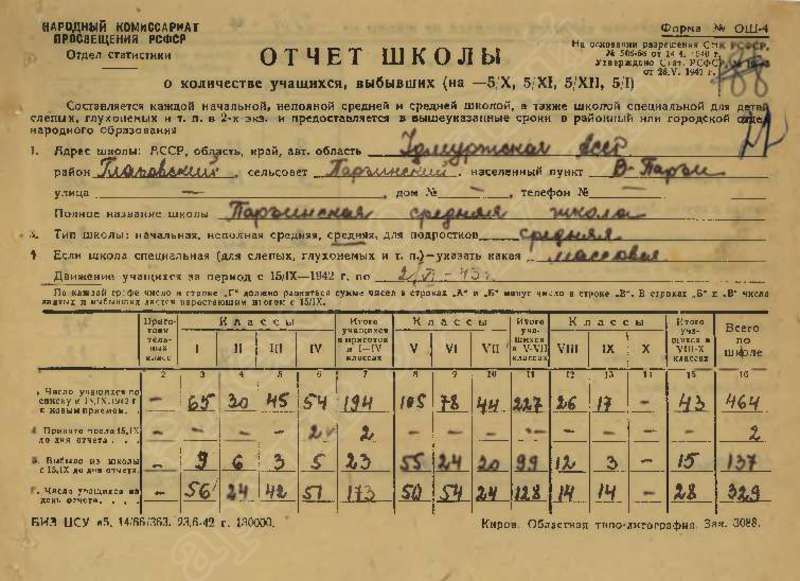 НАРОДНЫЙ КОМИССАРИАТ
ПРОСВЕЩЕНИЯ РСФСР
Отдел статистики
Форма № ОШ-4
На основании разрешения СНК РСФСР,
Утверждено Стат. РСФСР
от 26.V. 1942 г.
188
ОТЧЕТ ШКОЛЫ
о количестве учащихся, выбывших (на —5/X, 5/XI, 5/XII, 5/I)
Составляется каждой начальной, неполной средней и средней школой, а также школой специальной для детей
слепых, глухонемых и т. п. в 2-х экз. и предоставляется в вышеуказанные сроки в районный или городской отдел
народного образования
1. Адрес школы: АССР, область, край, авт. область Удмуртская АССР
район Глазовский, сельсовет Парзинский, населенный пункт В-Парзи
улица —, дом № —, телефон № —
Полное название школы Парзинская средняя школа
3. Тип школы: начальная, неполная средняя, средняя, для подростков средняя
4 Если школа специальная (для слепых, глухонемых и т. п.)—указать какая массовая
Движение учащихся за период с 15/IX—1942 г. по
По каждой графе число в строке „Г“ должно равняться сумме чисел в строках „А“ и „Б“ минус число в строке „В“. В строках „Б“ и „В“ числа
принятых и выбывших даются нарастающим итогом с 15/IX.
Приготовительный класс Классы I II III IV Итого учащихся в приготов и I—IV классах Классы V VI VII Итого учащихся в V-VII классах Классы VIII IX X Итого учащихся в VIII-X классах Всего по школе
2 3 4 5 6 7 8 9 10 11 12 13 14 15 16
Число учащихся по списку к 15/IX.1942 г с новым приемом. — 65 30 45 54 194 105 78 44 227 26 17 — 43 464
Принято после 15/IX до дня отчета — — — — 2 2 — — — — — — — — 2
Выбыло из школы с 15/IX до дня отчета. — 9 6 3 5 23 55 24 20 99 12 3 — 15 137
Число учащихся на день отчета. — 56 24 42 51 173 50 54 24 128 14 14 — 28 329
БИЗ ЦСУ 14/66/363. 23.6-42 г. 130000.
Киров. Областная типо-литография. Зак. 3088.